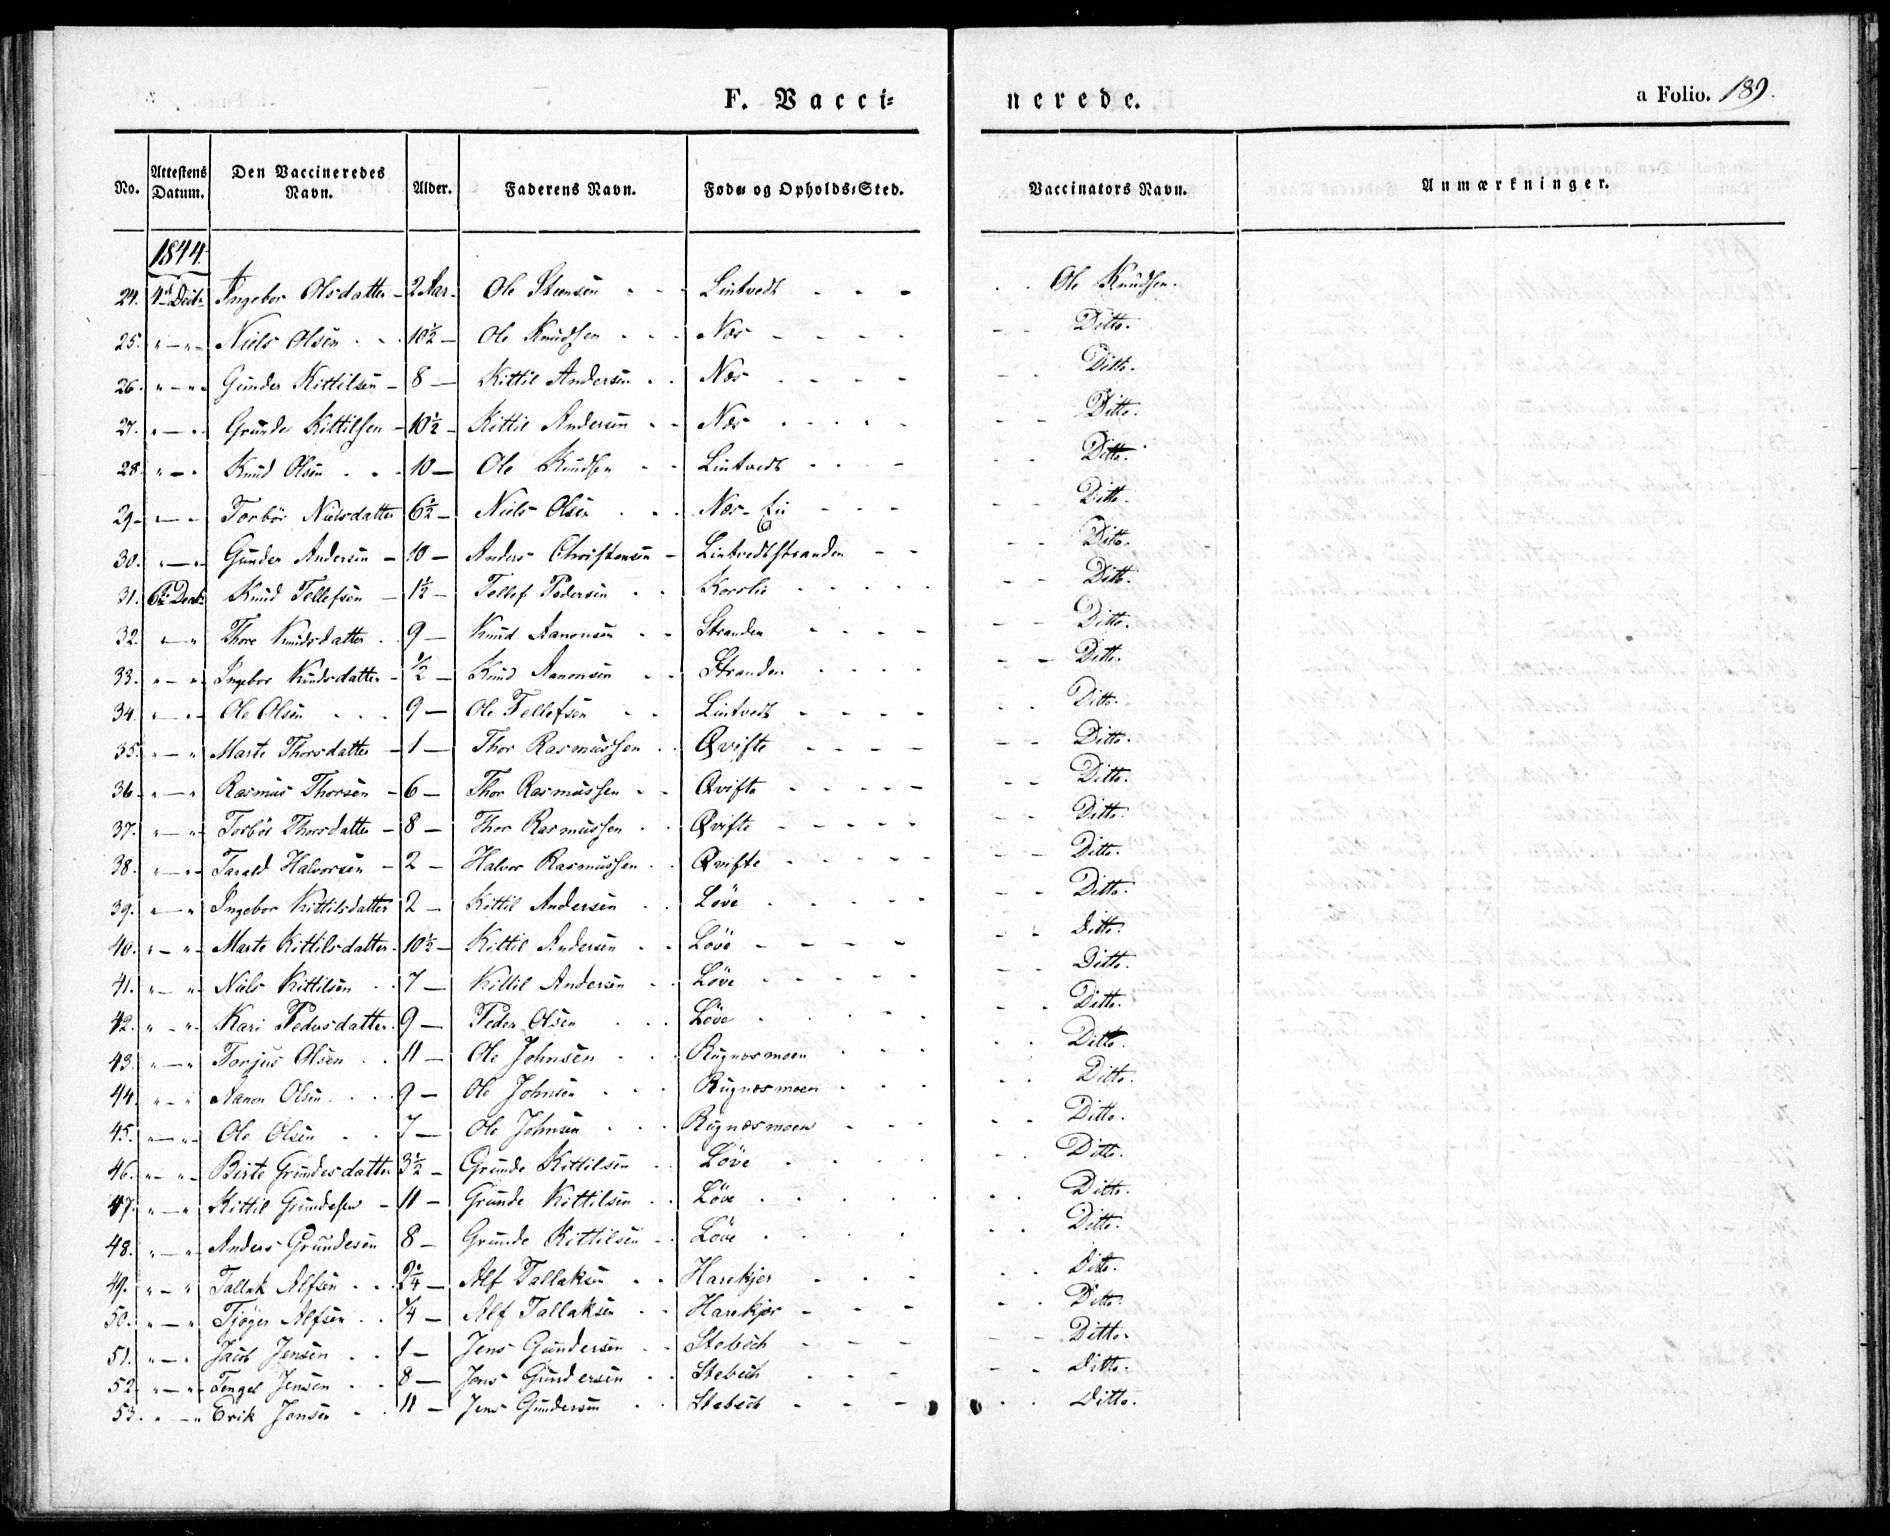 F. Vacci= nerede. a Folio. 189.
No. Attestens Datum. Den Vaccineredes Navn. Alder. Faderens Navn. Føde og Opholds-Sted. Vaccinators Navn. Anmærkninger.
1844.
24. 4de Decbr Ingebor Olsdatter - 2 Aar. Ole Steensen - - Lintvedt - - - Ole Knudsen.
25. " — " Niels Olsen - - 10½ — Ole Knudsen - - Næs - - - - Ditto.
26. " — " Gunder Kittilsen - 8 — Kittil Andersen - - Næs - - - - Ditto.
27. " — " Grunde Kittilsen - 10½ - Kittil Andersen - - Næs - - - - Ditto.
28. " — " Knud Olsen - - 10 — Ole Knudsen - - Lintvedt - - - Ditto.
29. " — " Torbør Nielsdatter 6½ - Niels Olsen - - Næs - - - Ditto.
30. " — " Gunder Andersen - 10 - Anders Christensen - Lintvedtstranden - - Ditto.
31. 6te Decbr Knud Tellefsen - 1½ - Tellef Pedersen - - Korslie - - - - Ditto.
32. " — " Thore Knudsdatter - 9 — Knud Aanonsen - - Stranden - - - - Ditto.
33. " — " Ingebor Knudsdatter - ½ - Knud Aanonsen - - Stranden - - - - Ditto.
34. " — " Ole Olsen - - - 9 — Ole Tellefsen - - Lintvedt - - - - Ditto.
35. " — " Marte Thorsdatter - 1 — Thor Rasmussen - - Qvifte - - - - Ditto.
36. " — " Rasmus Thorsen - 6 — Thor Rasmussen - - Qvifte - - - - Ditto.
37. " — " Torbør Thorsdatter - 8 — Thor Rasmussen - - Qvifte - - - - Ditto.
38. " — " Tarald Halvorsen - 2 — Halvor Rasmussen - - Qvifte - - - - Ditto.
39. " — " Ingebor Kittilsdatter 2 — Kittil Andersen - - Löve - - - - Ditto.
40. " — " Marte Kittilsdatter - 10½ — Kittil Andersen - - Löve - - - - Ditto.
41. " — " Niels Kittilsen - - 7 — Kittil Andersen - - Löve - - - - Ditto.
42. " — " Kari Pedersdatter. 9 — Peder Olsen - - - Löve - - - - Ditto.
43. " — " Torjus Olsen - - 11 — Ole Johnsen - - - Rugnæsmoen - - - Ditto.
44. " — " Aanon Olsen - - 9 — Ole Johnsen - - - Rugnæsmoen - - - Ditto.
45. " — " Ole Olsen - - 7 — Ole Johnsen - - - Rugnæsmoen - - - Ditto.
46. " — " Birte Grundesdatter 3½ — Grunde Kittilsen - - Löve - - - - Ditto.
47. " — " Kittil Grundesen - 11 — Grunde Kittilsen - - Löve - - - - Ditto.
48. " — " Anders Grundesen 8 — Grunde Kittilsen - - Löve - - - - Ditto.
49. " — " Tallak Alfsen - - 2¼ — Alf Tallaksen - - Harekjer - - - Ditto.
50. " — " Tjöger Alfsen - - ¼ — Alf Tallaksen - - Harekjer - - - Ditto.
51. " — " Jacob Jensen - - 1 — Jens Gundersen - - Stebech - - - Ditto.
52. " — " Tengel Jensen - - 8 — Jens Gundersen - - Stebech - - - Ditto.
53. " — " Erik Jensen - - 11 — Jens Gundersen - - Stebech - - - Ditto.